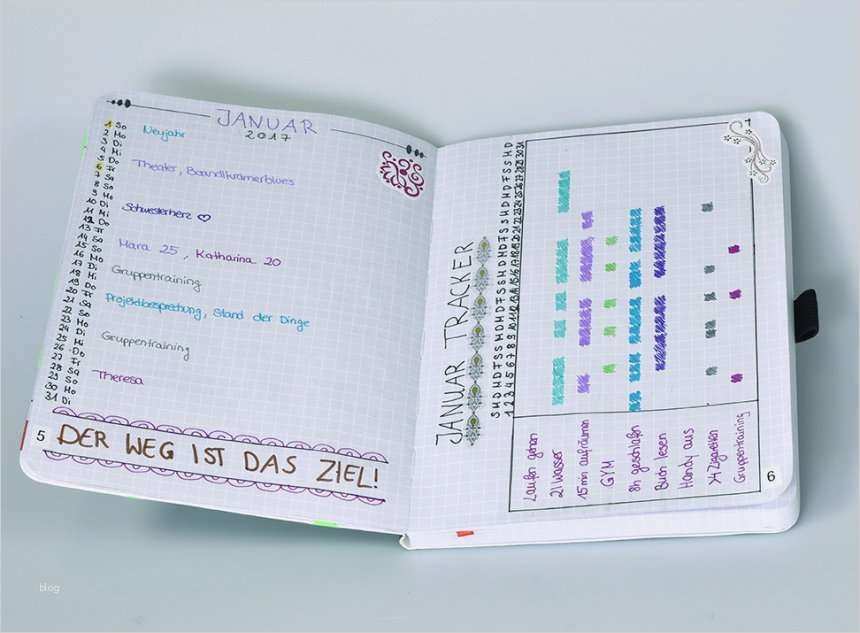 JANUAR
2017
1 So Neujahr
2 Mo
3 Di
4 Mi
5 Do Theater, Boandlkramerblues
6 Fr
7 Sa
8 So
9 Mo
10 Di Schwesterherz
11 Mi
12 Do
13 Fr
14 Sa Mara 25, Katharina 20
15 So
16 Mo
17 Di Gruppentraining
18 Mi
19 Do
20 Fr Projektbesprechung, Stand der Dinge
21 Sa
22 So
23 Mo
24 Di Gruppentraining
25 Mi
26 Do
27 Fr
28 Sa Theresa
29 So
30 Mo
31 Di
5 DER WEG IST DAS ZIEL!
JANUAR TRACKER
S M D M D F S S M D M D F S S M D M D F S S M D M D F S S M D
1 2 3 4 5 6 7 8 9 10 11 12 13 14 15 16 17 18 19 20 21 22 23 24 25 26 27 28 29 30 31
Laufen gehen
2l Wasser
15 min aufräumen
GYM
8h geschlafen
Buch lesen
Handy aus
Zigaretten
Gruppentraining
6
blog